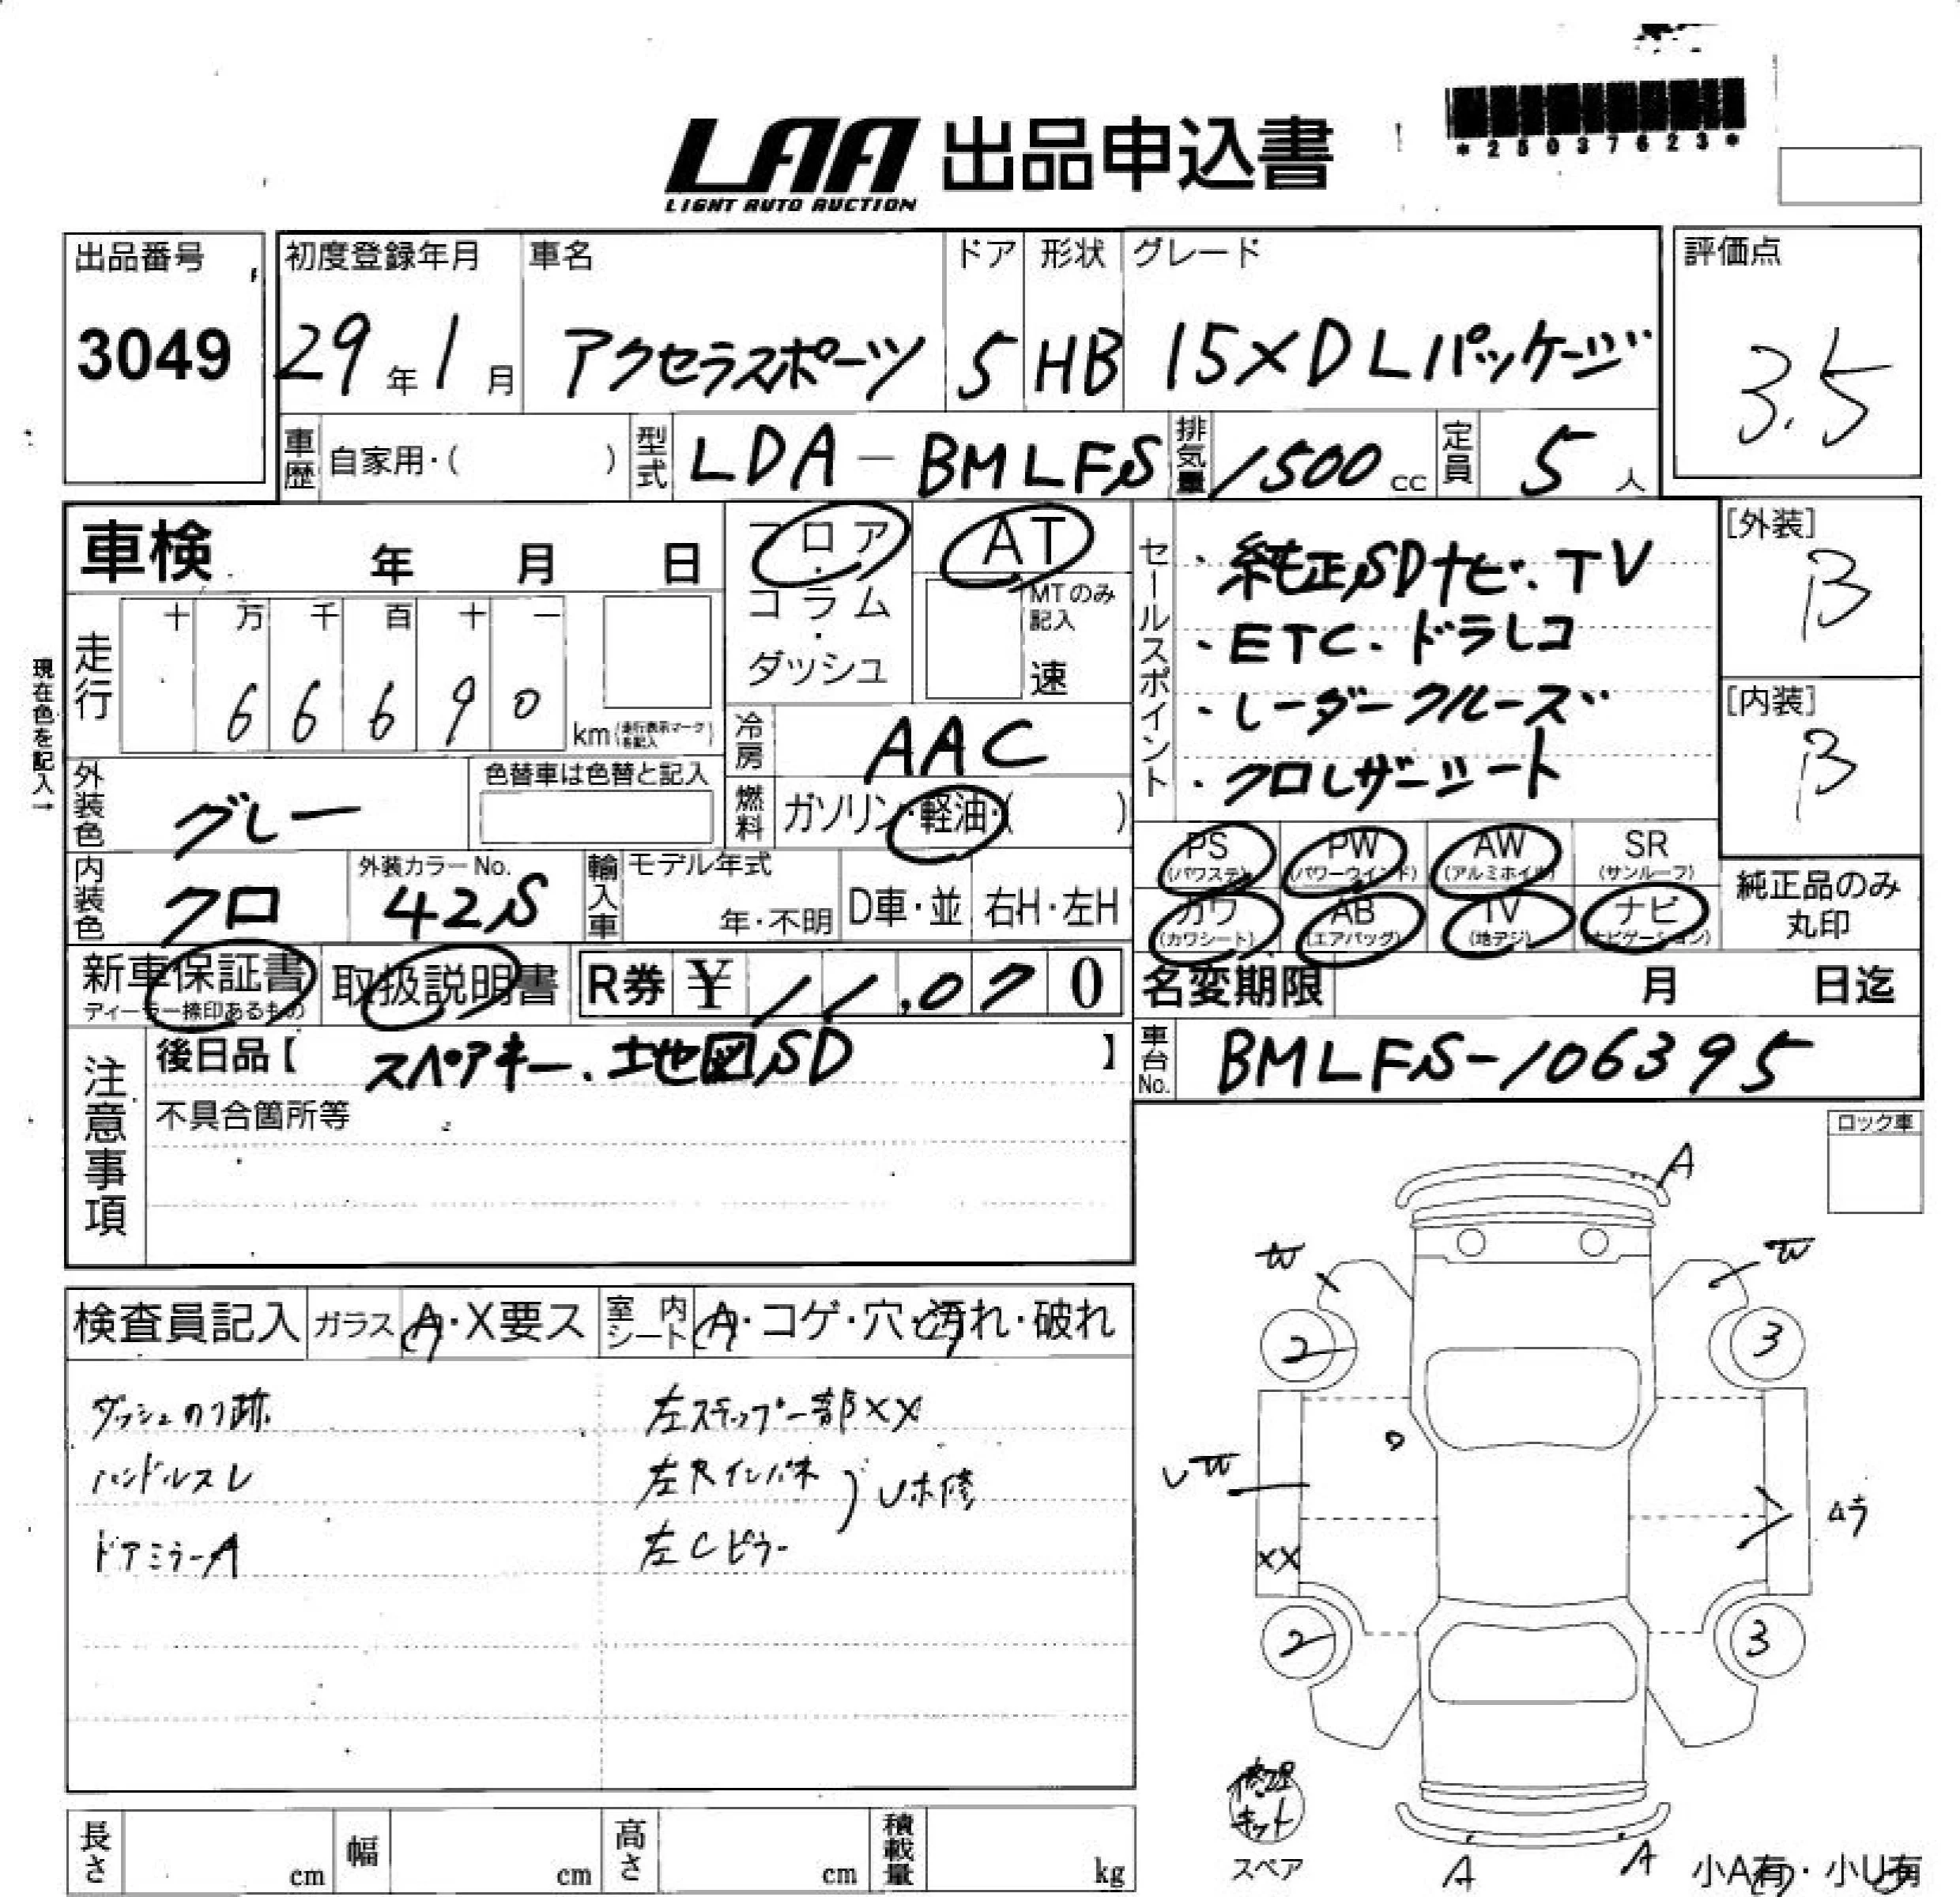 *25037623*
LAA 出品申込書
LIGHT AUTO AUCTION
出品番号
3049
初度登録年月
29年1月
車名
アクセラスポーツ
ドア
5
形状
HB
グレード
15XD Lパッケージ
評価点
3.5
車歴 自家用・( )
型式 LDA-BMLFS
排気量 1500cc
定員 5人
車検 年 月 日
フロア・コラム・ダッシュ
AT
MTのみ記入
速
セールスポイント
・純正SDナビ、TV
・ETC、ドラレコ
・レーダークルーズ
・クロレザーシート
[外装]
B
[内装]
B
現在色を記入→
走行
十 万 千 百 十 一
6 6 6 9 0
km (走行表示マークを記入)
冷房 AAC
外装色 グレー
色替車は色替と記入
燃料 ガソリン・軽油・( )
内装色 クロ
外装カラーNo.
42S
輸入車
モデル年式
年・不明
D車・並
右H・左H
PS (パワステ)
PW (パワーウインド)
AW (アルミホイル)
SR (サンルーフ)
カワ (カワシート)
AB (エアバッグ)
TV (地デジ)
ナビ (ナビゲーション)
純正品のみ
丸印
新車保証書
ディーラー捺印あるもの
取扱説明書
R券 ¥11,070
名変期限 月 日迄
注意事項
後日品【スペアキー、地図SD】
不具合箇所等
車台No. BMLFS-106395
ロック車
検査員記入
ガラス A・X要ス
室内シート A・コゲ・穴・汚れ・破れ
ダッシュのリ跡
ハンドルスレ
ドアミラーA
左ステップ一部XX
左Rインパネ
左Cピラー
U補修
A
W
W
2
3
UW
XX
2
3
修理キット
スペア
A
A
小A有・小U有
長さ cm
幅 cm
高さ cm
積載量 kg